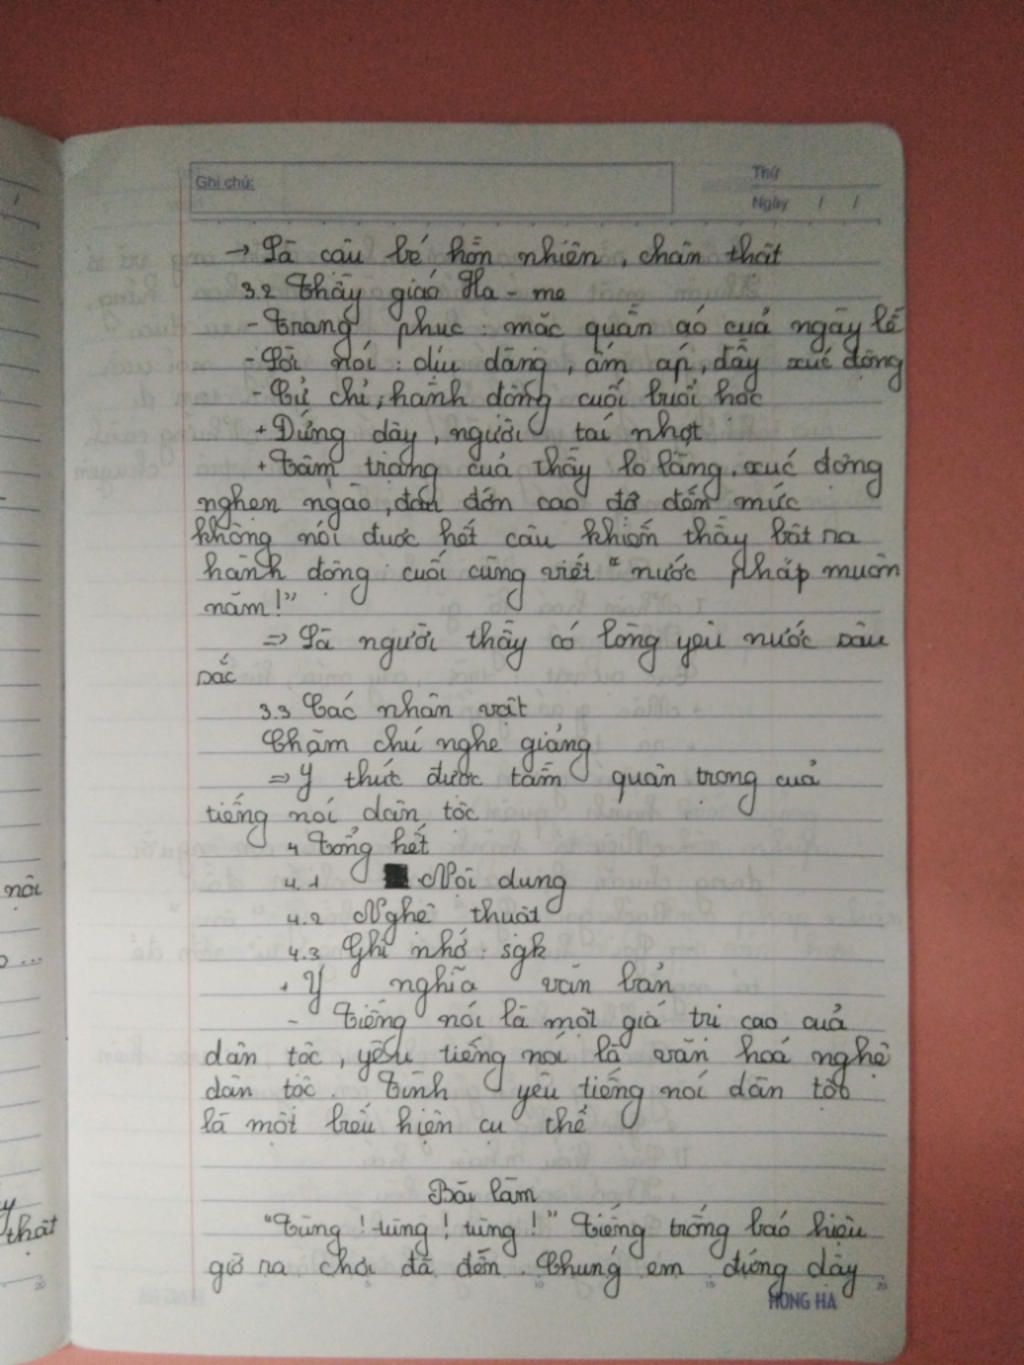 Ghi chú:
Thứ
Ngày / /
→ Là cậu bé hồn nhiên, chân thật
3.2 Thầy giáo Ha-me
- Trang phục: mặc quần áo của ngày lễ
- Lời nói: dịu dàng, ấm áp, đầy xúc động
- Cử chỉ, hành động cuối buổi học
+ Đứng dậy, người tái nhợt
+ Tâm trạng của thầy lo lắng, xúc động
nghẹn ngào, đớn cao độ đến mức
không nói được hết câu khiến thầy bật ra
hành động: cuối cùng viết "nước Pháp muôn
năm!"
⇒ Là người thầy có lòng yêu nước sâu
sắc
3.3 Các nhân vật
Chăm chú nghe giảng
⇒ Ý thức được tầm quan trọng của
tiếng nói dân tộc
4 Tổng kết
4.1 Nội dung
4.2 Nghệ thuật
4.3 Ghi nhớ: sgk
. Ý nghĩa văn bản
- Tiếng nói là một giá trị cao của
dân tộc, yêu tiếng nói là văn hoá nghệ
dân tộc. Tình yêu tiếng nói dân tộc
là một biểu hiện cụ thể
Bài làm
"Tùng! tùng! tùng!" Tiếng trống báo hiệu
giờ ra chơi đã đến. Chúng em đứng dậy
HONG HA
nội
...
thật